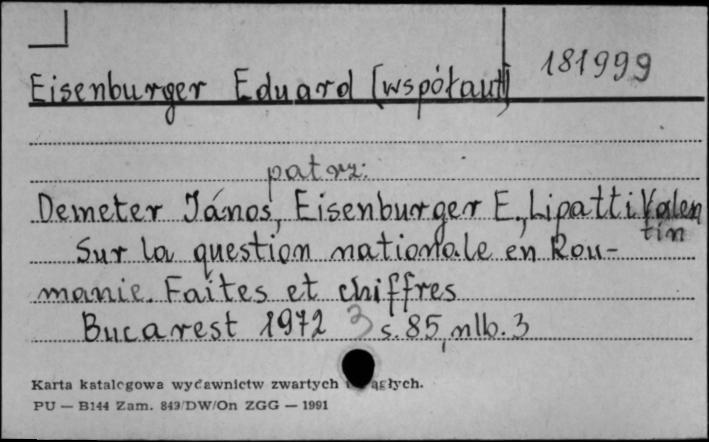 Eisenburger Eduard [współaut] 181999
patrz:
Demeter János, Eisenburger E., Lipatti Valen
tin
Sur la question nationale en Rou-
manie. Faites et chiffres
Bucarest 1972 3 s. 85, nlb. 3
Karta katalogowa wydawnictw zwartych i ciągłych.
PU — B144 Zam. 843/DW/On ZGG — 1991